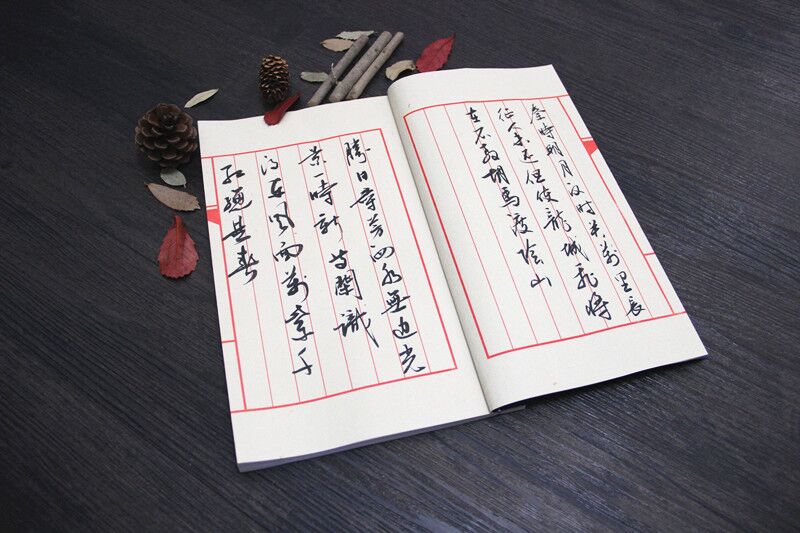 秦時明月汉时关萬里长
征人未还但使龍城飛將
在不教胡馬度陰山
勝日尋芳泗水無边光
景一時新等閑識
得東風面萬紫千
紅總是春